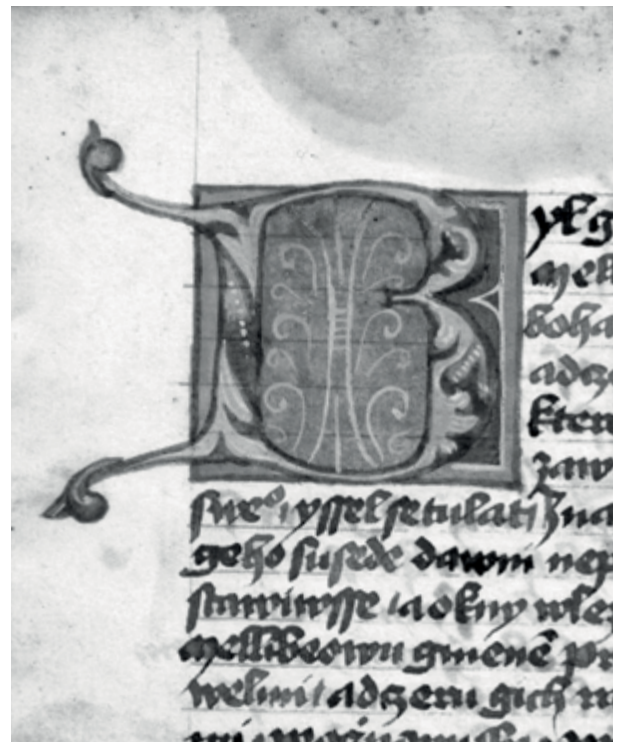 B
yl g
mel
boha
adcze
kter
zaw
sweº yssel se tulati Zna
geho susede dawni nep
stawiwsse a okny wlez
mellibeowu gmene pr
welmi adczeru gich